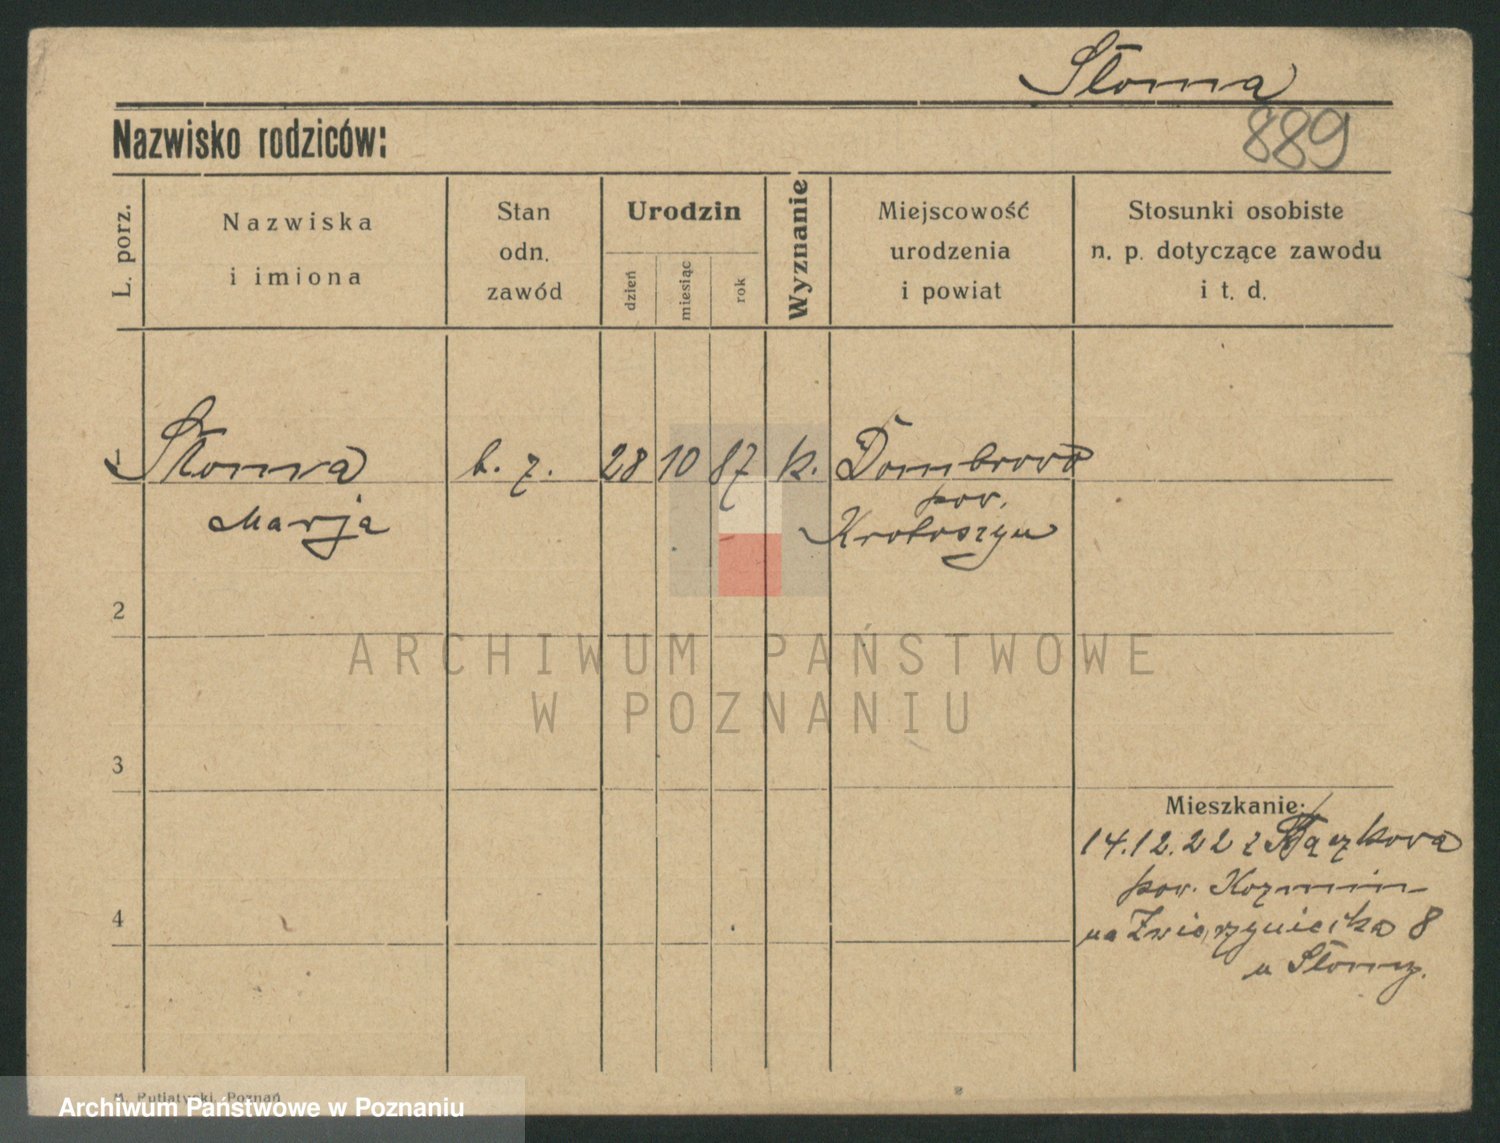 Słoma
889
Nazwisko rodziców:
L. porz.
Nazwiska
i imiona
Stan
odn.
zawód
Urodzin
dzień
miesiąc
rok
Wyznanie
Miejscowość
urodzenia
i powiat
Stosunki osobiste
n. p. dotyczące zawodu
i t. d.
1 Słoma b. z. 28 10 87 k. Dombrowa
Marja
pow.
Krotoszyn
2
3
4
Mieszkanie:
14.12.22 z
pow. Kozmin
na Zwierzyniecka 8
u Słomy.
ARCHIWUM PAŃSTWOWE
W POZNANIU
M. Putiatycki, Poznań
Archiwum Państwowe w Poznaniu